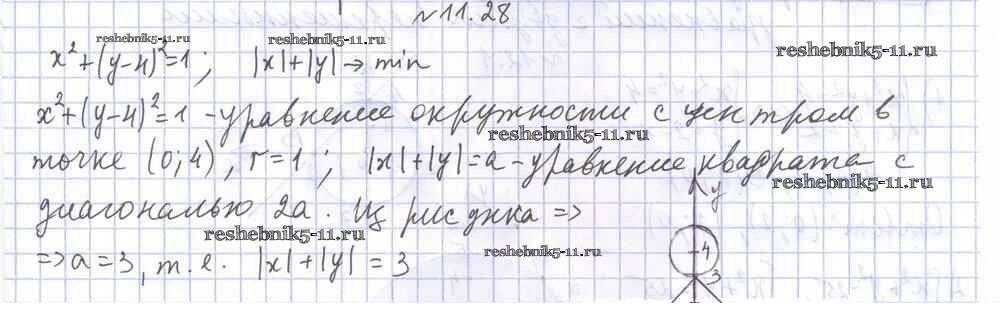 №11.28
reshebnik5-11.ru reshebnik5-11.ru reshebnik5-11.ru
x²+(y-4)²=1; |x|+|y|→min
x²+(y-4)²=1 -уравнение окружности с центром в
reshebnik5-11.ru
точке (0;4), r=1; |x|+|y|=a-уравнение квадрата с
reshebnik5-11.ru
y
диагональю 2a. Из рисунка =>
reshebnik5-11.ru reshebnik5-11.ru
4
=>a=3, т.е. |x|+|y|=3
3